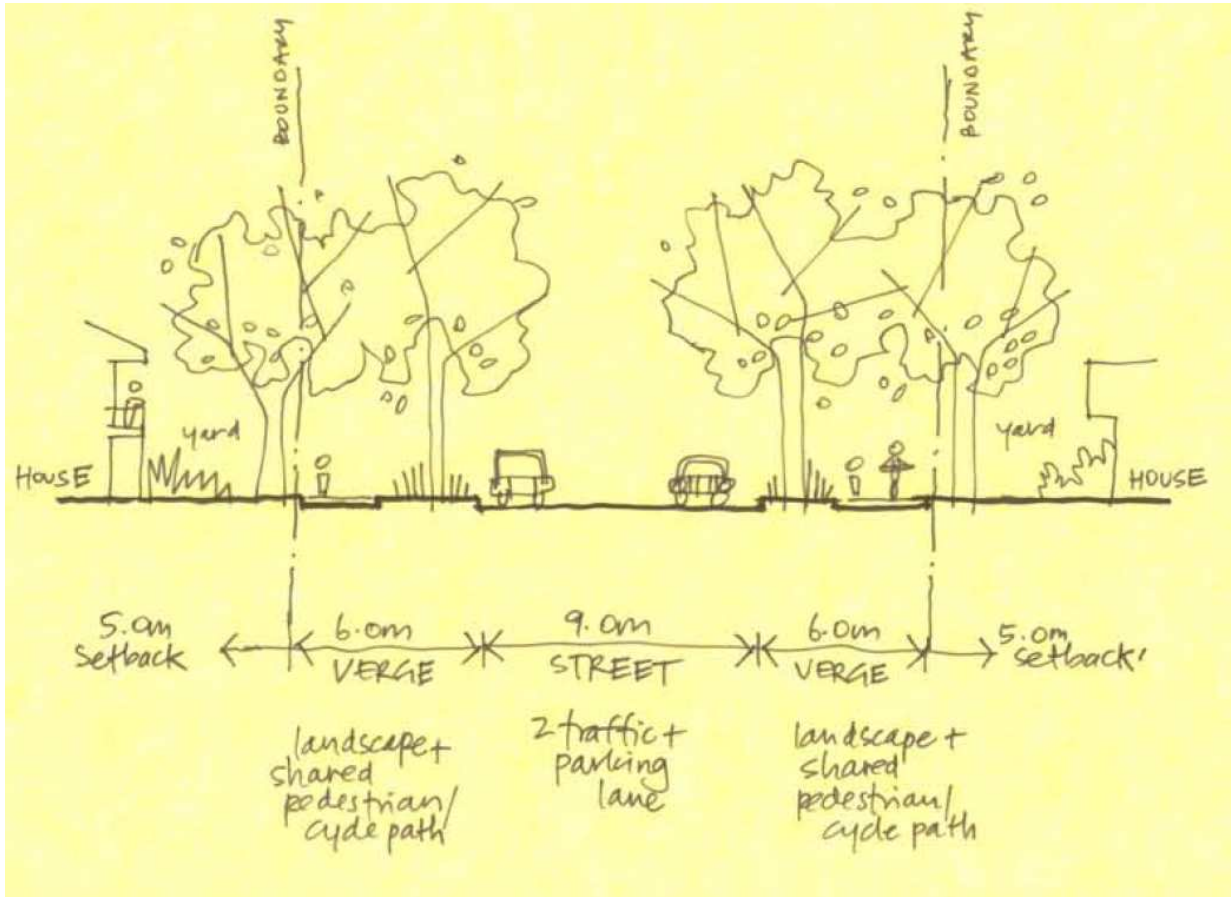 BOUNDARY
BOUNDARY
yard
yard
HOUSE
HOUSE
5.0m
setback
6.0m
VERGE
9.0m
STREET
6.0m
VERGE
5.0m
setback'
landscape +
shared
pedestrian/
cycle path
2 traffic +
parking
lane
landscape +
shared
pedestrian/
cycle path